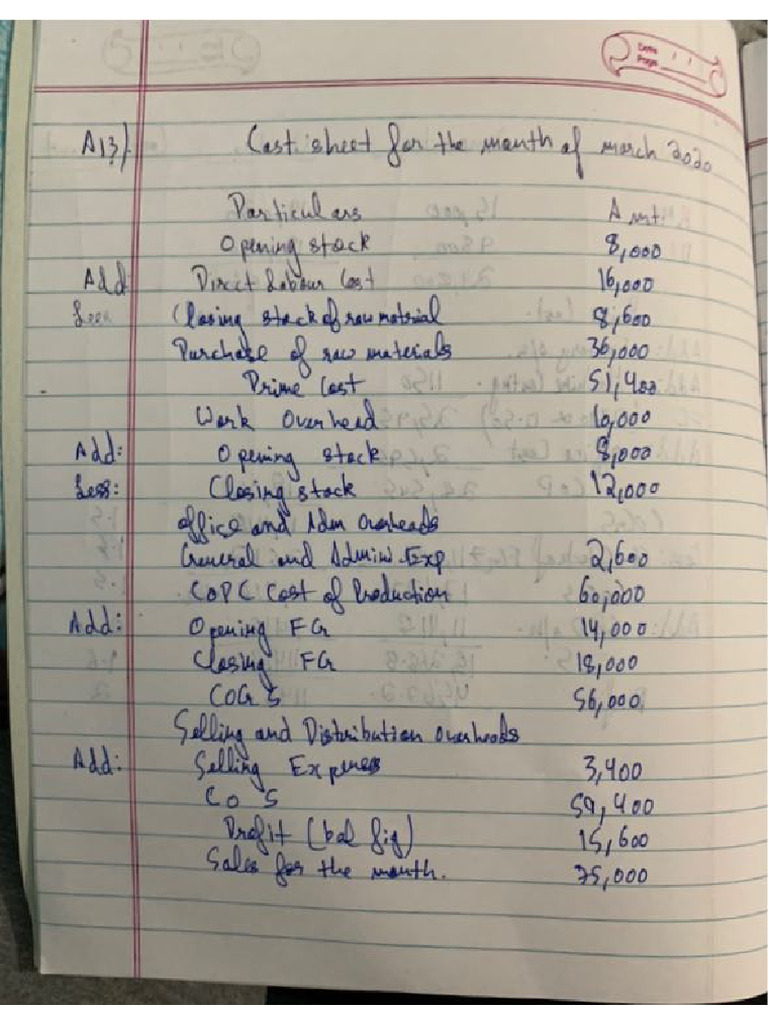 Date
Page
A13/. Cost sheet for the month of march 2020
Particulars Amt.
Opening stock 8,000
Add Direct Labour Cost 16,000
Less Closing stock of raw material 8,600
Purchase of raw materials 36,000
Prime Cost 51,400
Work Overhead 10,000
Add: Opening stock 8,000
Less: Closing stock 12,000
Office and Adm Overheads
General and Admini. Exp 2,600
COPC Cost of Production 60,000
Add: Opening FG 14,000
Closing FG 18,000
COGS 56,000
Selling and Distribution overheads
Add: Selling Expenses 3,400
COS 59,400
Profit (bal fig) 15,600
Sales for the month. 75,000